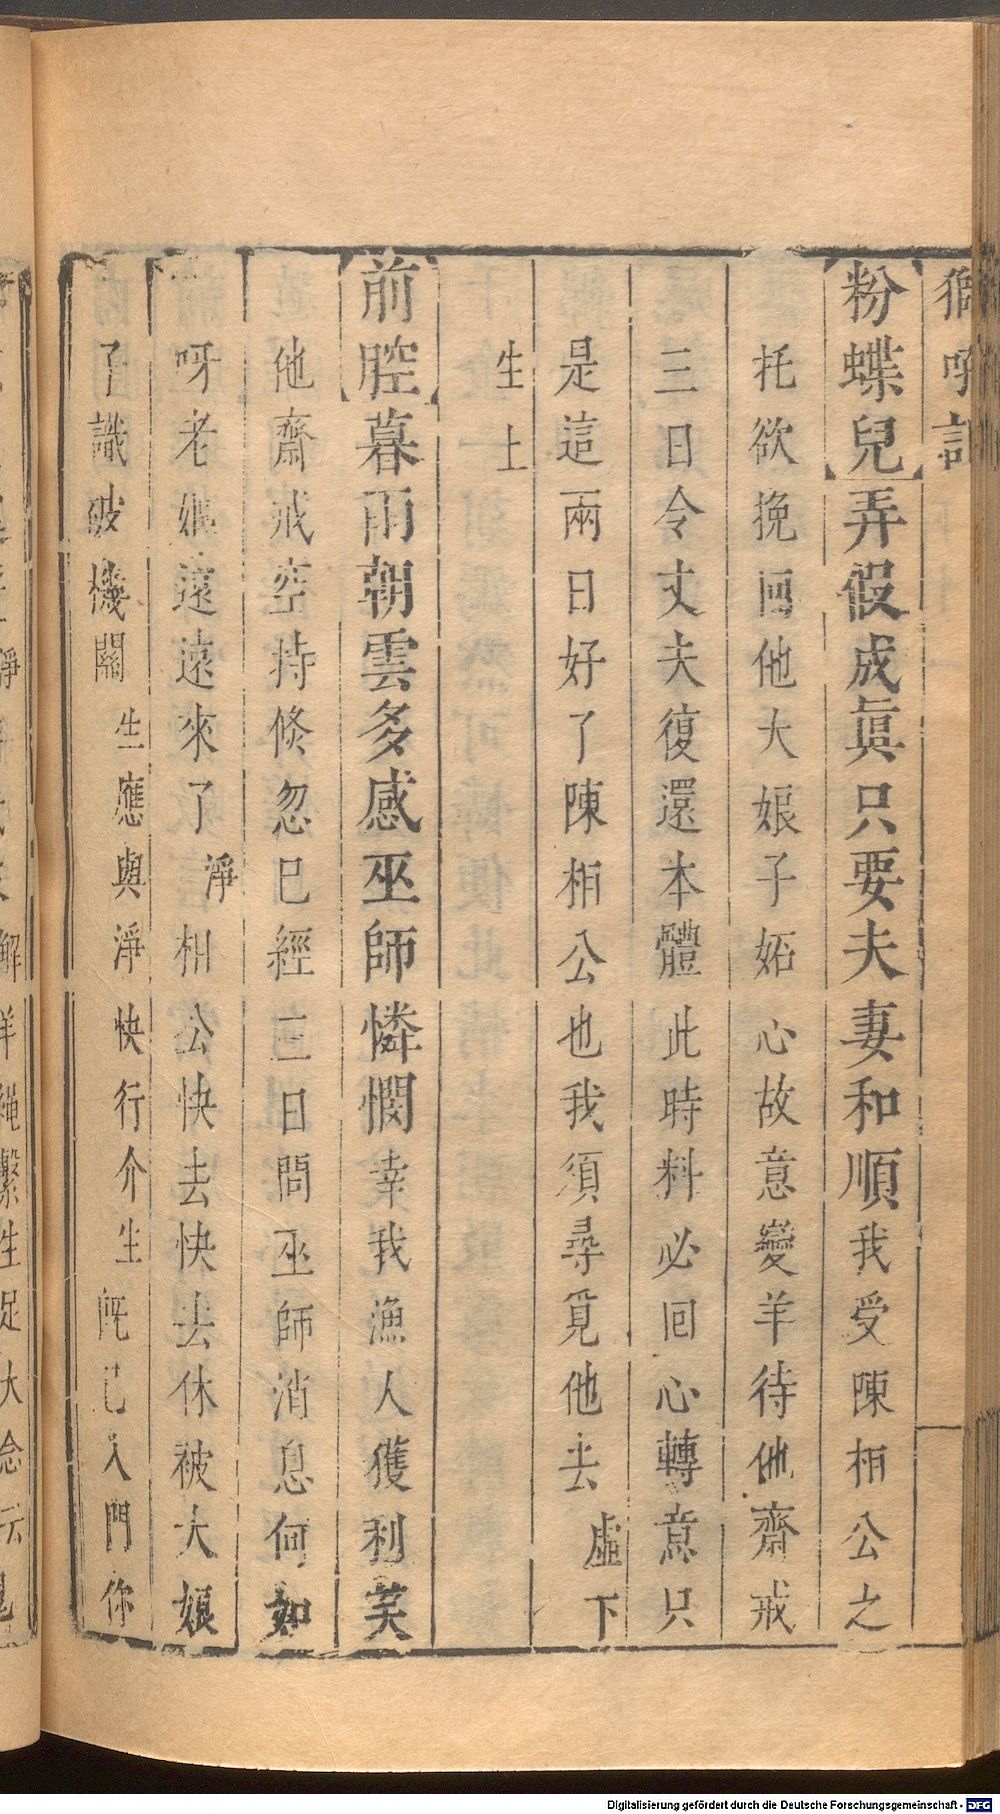 獅吼記
粉蝶兒弄假成眞只要夫妻和順我受陳相公之
托欲挽囘他大娘子妬心故意變羊待他齋戒
三日令丈夫復還本體此時料必回心轉意只
是這兩日好了陳相公也我須尋覓他去虛下
生上
前腔暮雨朝雲多感巫師憐憫幸我漁人獲利美
他齋戒空持倏忽已經三日問巫師消息何如
呀老媼遠遠來了淨相公快去快去休被大娘
子識破機關生應與淨快行介生旣已入門你
Digitalisierung gefördert durch die Deutsche Forschungsgemeinschaft - DFG